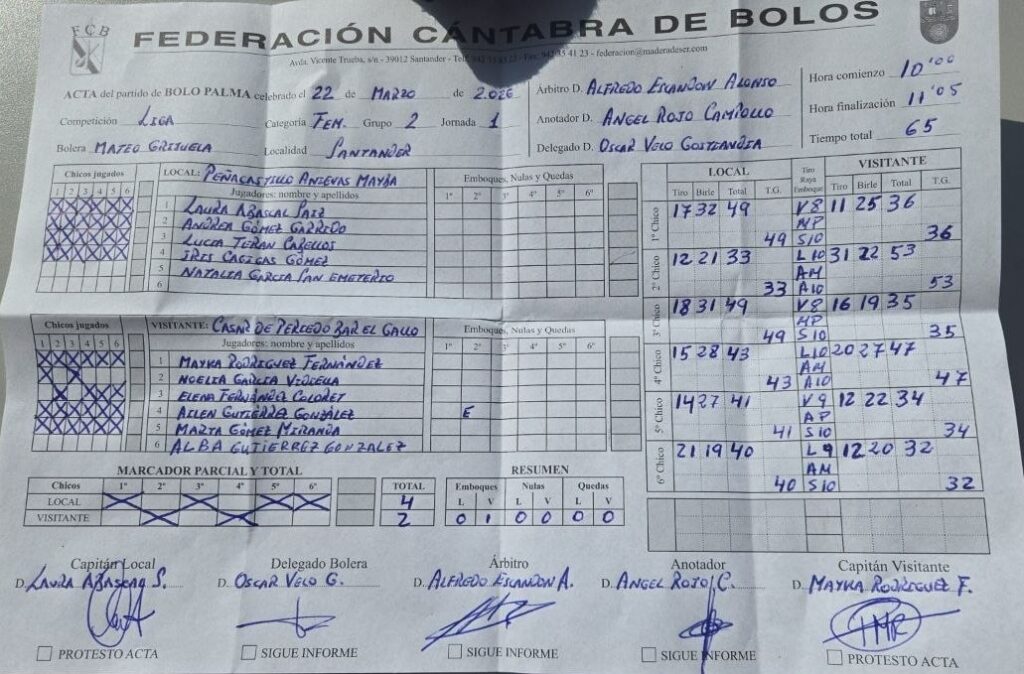 FCB
FEDERACIÓN CÁNTABRA DE BOLOS
Avda. Vicente Trueba, s/n - 39012 Santander - federacion@maderadeser.com
ACTA del partido de BOLO PALMA celebrado el 22 de MARZO de 2.026
Competición LIGA Categoría FEM. Grupo 2 Jornada 1
Bolera MATEO GRIJUELA Localidad SANTANDER
Árbitro D. ALFREDO ESCANDON ALONSO
Anotador D. ANGEL ROJO CAMPOLLO
Delegado D. OSCAR VELO
Hora comienzo 10'00
Hora finalización 11'05
Tiempo total 65
Chicos jugados
1 2 3 4 5 6
LOCAL: PEÑACASTILLO ANIEVAS MAYBA
Jugadores: nombre y apellidos
Emboques, Nulas y Quedas
1º 2º 3º 4º 5º 6º
1 LAURA ABASCAL SAIZ
2 ANDREA GÓMEZ GARRIDO
3 LUCIA TERAN CABELLOS
4 IRIS CAGIGAS GÓMEZ
5 NATALIA GARCIA SAN EMETERIO
6
Chicos jugados
1 2 3 4 5 6
VISITANTE: CASAR DE PERIEDO BAR EL GALLO
Jugadores: nombre y apellidos
Emboques, Nulas y Quedas
1º 2º 3º 4º 5º 6º
1 MAYKA RODRIGUEZ FERNÁNDEZ
2 NOELIA GARCIA
3 ELENA FERNÁNDEZ COLORET
4 AILEN GUTIÉRREZ GONZÁLEZ E
5 MARTA GÓMEZ MIRANDA
6 ALBA GUTIERREZ GONZALEZ
LOCAL Tiro Raya Emboque VISITANTE
Tiro Birle Total T.G. Tiro Birle Total T.G.
1º Chico 17 32 49 V8 11 25 36
MP
49 S10 36
2º Chico 12 21 33 L10 31 22 53
AM
33 A10 53
3º Chico 18 31 49 V8 16 19 35
MP
49 S10 35
4º Chico 15 28 43 L10 20 27 47
AM
43 A10 47
5º Chico 14 27 41 V9 12 22 34
AP
41 S10 34
6º Chico 21 19 40 L9 12 20 32
AM
40 S10 32
MARCADOR PARCIAL Y TOTAL
Chicos 1º 2º 3º 4º 5º 6º TOTAL
LOCAL 4
VISITANTE 2
RESUMEN
Emboques Nulas Quedas
L V L V L V
0 1 0 0 0 0
Capitán Local Delegado Bolera Árbitro Anotador Capitán Visitante
D. LAURA ABASCAL S. D. OSCAR VELO G. D. ALFREDO ESCANDON A. D. ANGEL ROJO C. D. MAYKA RODRIGUEZ F.
PROTESTO ACTA SIGUE INFORME SIGUE INFORME SIGUE INFORME PROTESTO ACTA